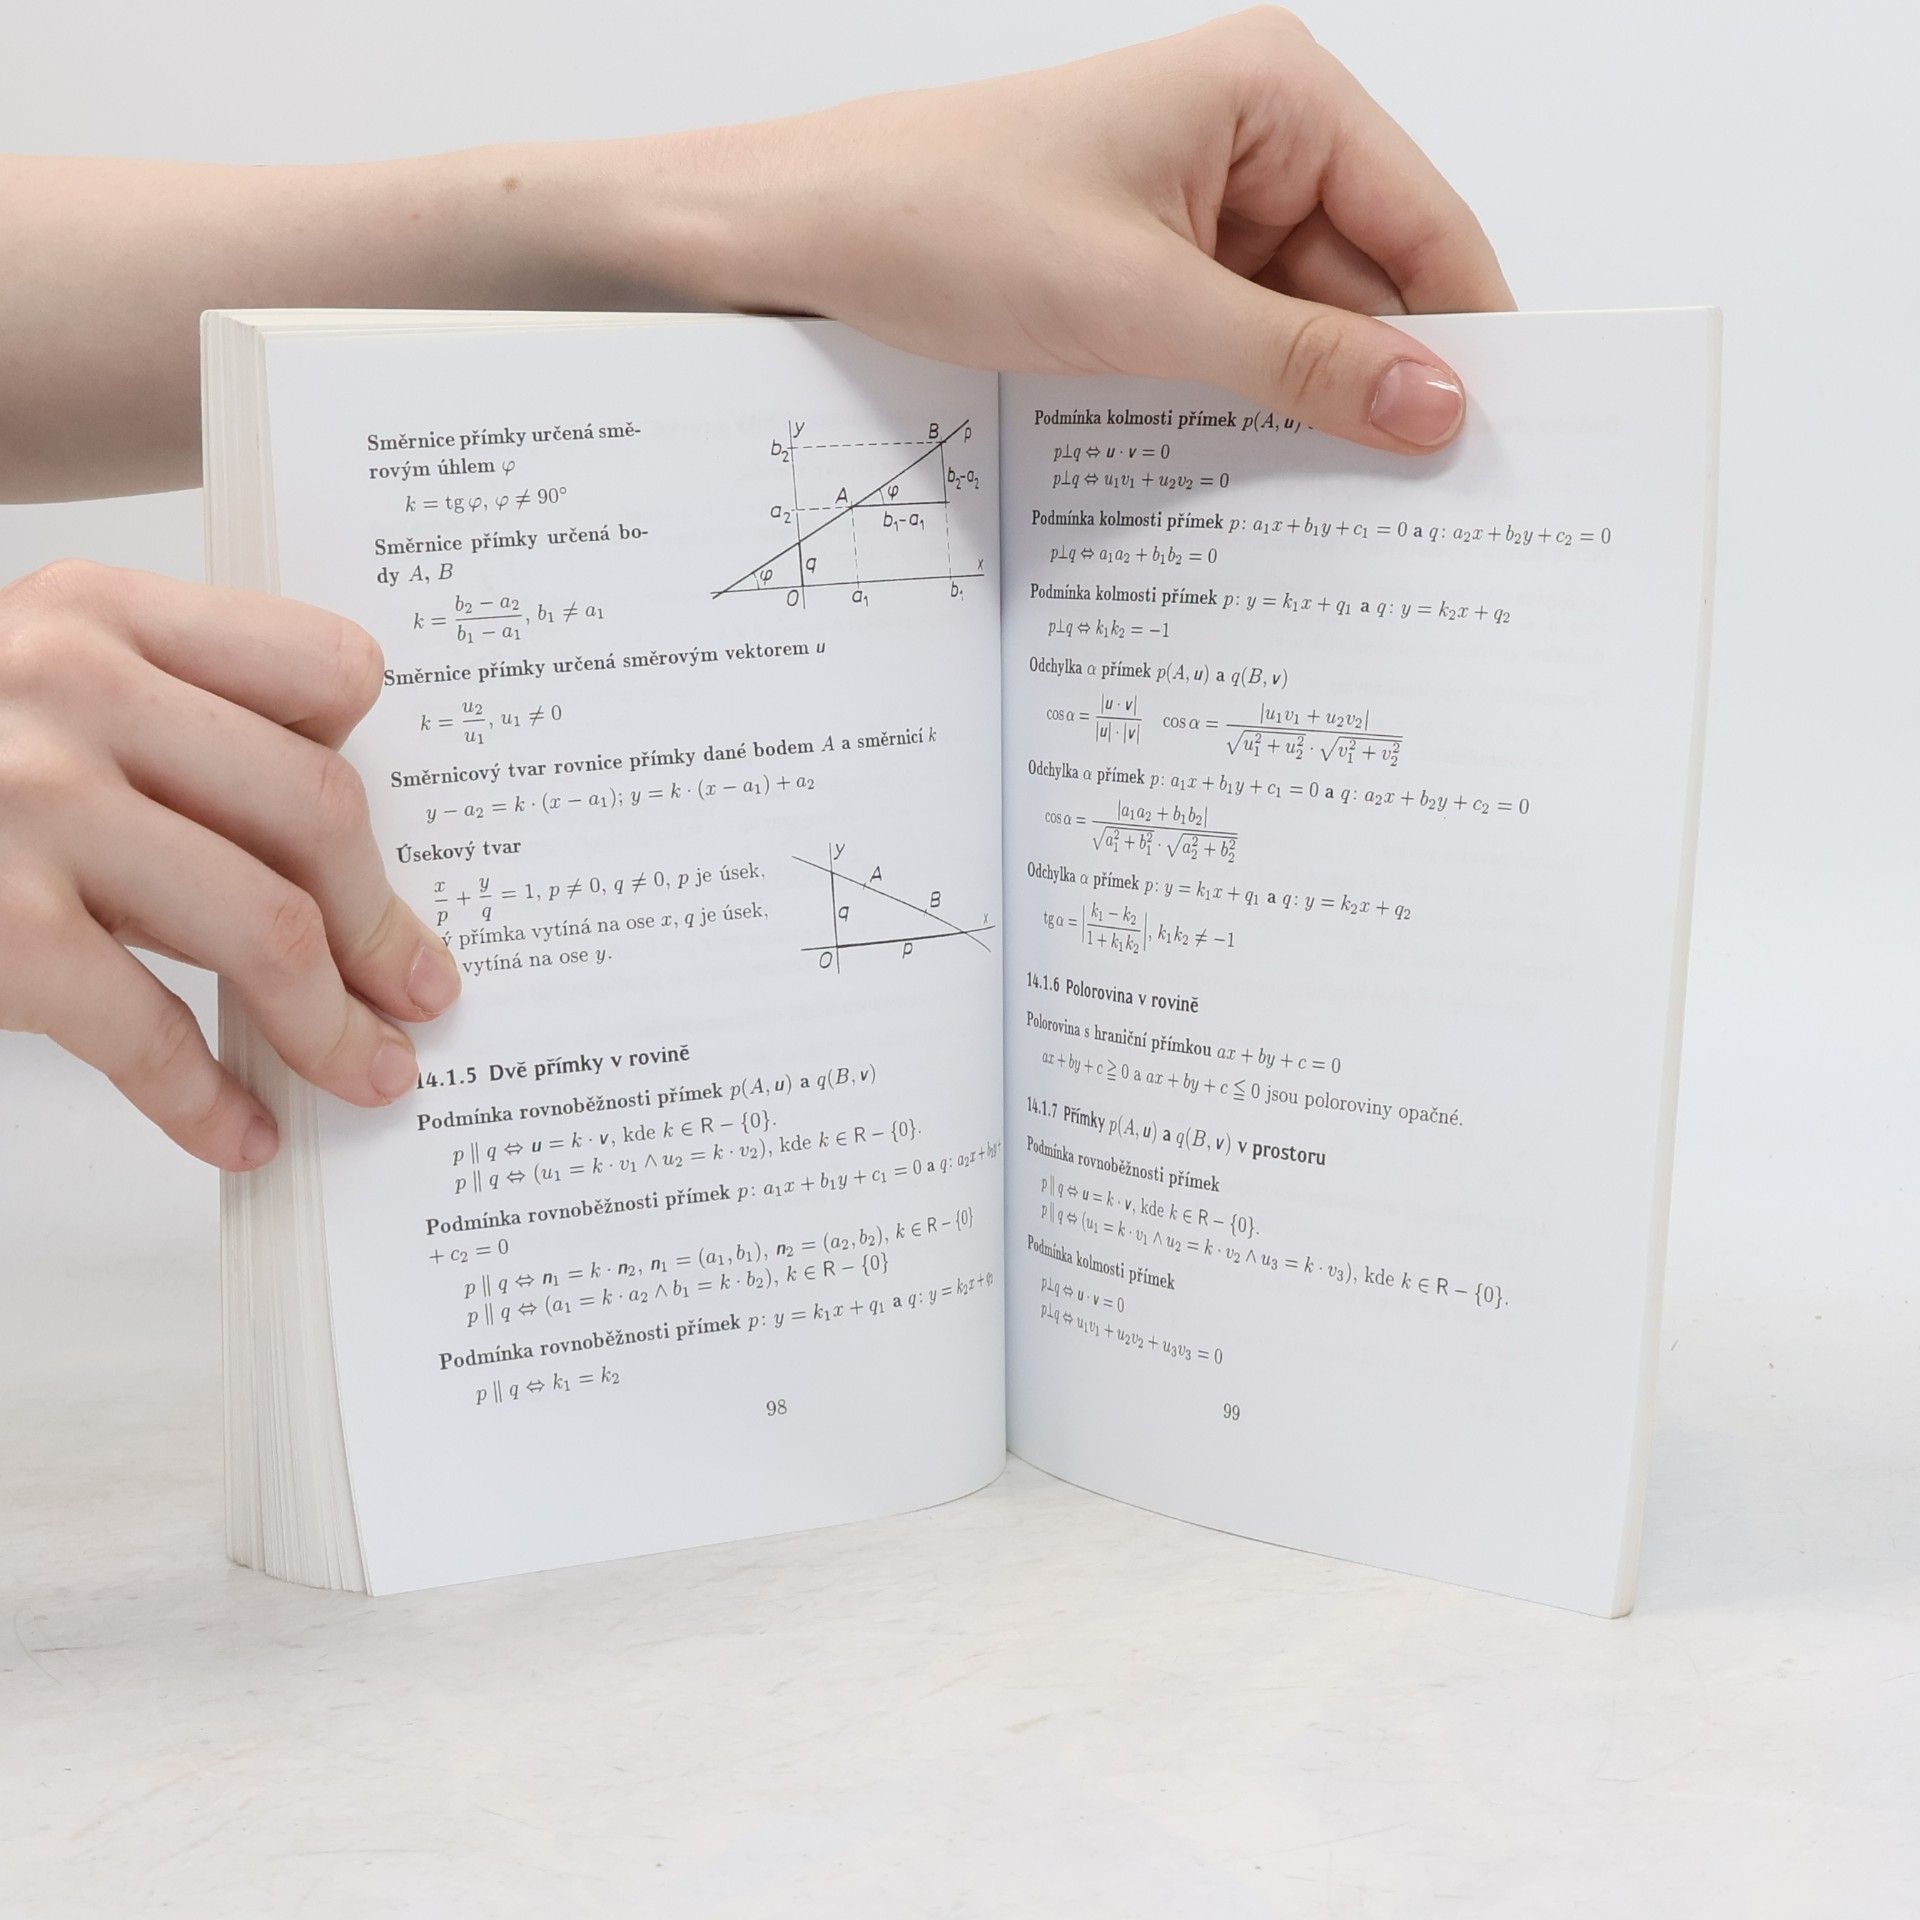 Směrnice přímky určená smě-
rovým úhlem φ
k = tg φ, φ ≠ 90°
Směrnice přímky určená bo-
dy A, B
k = (b₂ − a₂)/(b₁ − a₁), b₁ ≠ a₁
y
b₂
B
p
b₂-a₂
A
φ
a₂
b₁-a₁
φ
q
x
O
a₁
b₁
Směrnice přímky určená směrovým vektorem u
k = u₂/u₁, u₁ ≠ 0
Směrnicový tvar rovnice přímky dané bodem A a směrnicí k
y − a₂ = k · (x − a₁); y = k · (x − a₁) + a₂
Úsekový tvar
x/p + y/q = 1, p ≠ 0, q ≠ 0, p je úsek,
přímka vytíná na ose x, q je úsek,
vytíná na ose y.
y
A
B
q
x
O
p
14.1.5 Dvě přímky v rovině
Podmínka rovnoběžnosti přímek p(A, u) a q(B, v)
p ∥ q ⇔ u = k · v, kde k ∈ R − {0}.
p ∥ q ⇔ (u₁ = k · v₁ ∧ u₂ = k · v₂), kde k ∈ R − {0}.
Podmínka rovnoběžnosti přímek p: a₁x + b₁y + c₁ = 0 a q: a₂x + b₂y +
+ c₂ = 0
p ∥ q ⇔ n₁ = k · n₂, n₁ = (a₁, b₁), n₂ = (a₂, b₂), k ∈ R − {0}
p ∥ q ⇔ (a₁ = k · a₂ ∧ b₁ = k · b₂), k ∈ R − {0}
Podmínka rovnoběžnosti přímek p: y = k₁x + q₁ a q: y = k₂x + q₂
p ∥ q ⇔ k₁ = k₂
98
Podmínka kolmosti přímek p(A, u)
p⊥q ⇔ u · v = 0
p⊥q ⇔ u₁v₁ + u₂v₂ = 0
Podmínka kolmosti přímek p: a₁x + b₁y + c₁ = 0 a q: a₂x + b₂y + c₂ = 0
p⊥q ⇔ a₁a₂ + b₁b₂ = 0
Podmínka kolmosti přímek p: y = k₁x + q₁ a q: y = k₂x + q₂
p⊥q ⇔ k₁k₂ = −1
Odchylka α přímek p(A, u) a q(B, v)
cos α = |u · v|/(|u| · |v|) cos α = |u₁v₁ + u₂v₂|/(√(u₁² + u₂²) · √(v₁² + v₂²))
Odchylka α přímek p: a₁x + b₁y + c₁ = 0 a q: a₂x + b₂y + c₂ = 0
cos α = |a₁a₂ + b₁b₂|/(√(a₁² + b₁²) · √(a₂² + b₂²))
Odchylka α přímek p: y = k₁x + q₁ a q: y = k₂x + q₂
tg α = |(k₁ − k₂)/(1 + k₁k₂)|, k₁k₂ ≠ −1
14.1.6 Polorovina v rovině
Polorovina s hraniční přímkou ax + by + c = 0
ax + by + c ≧ 0 a ax + by + c ≦ 0 jsou poloroviny opačné.
14.1.7 Přímky p(A, u) a q(B, v) v prostoru
Podmínka rovnoběžnosti přímek
p ∥ q ⇔ u = k · v, kde k ∈ R − {0}.
p ∥ q ⇔ (u₁ = k · v₁ ∧ u₂ = k · v₂ ∧ u₃ = k · v₃), kde k ∈ R − {0}.
Podmínka kolmosti přímek
p⊥q ⇔ u · v = 0
p⊥q ⇔ u₁v₁ + u₂v₂ + u₃v₃ = 0
99